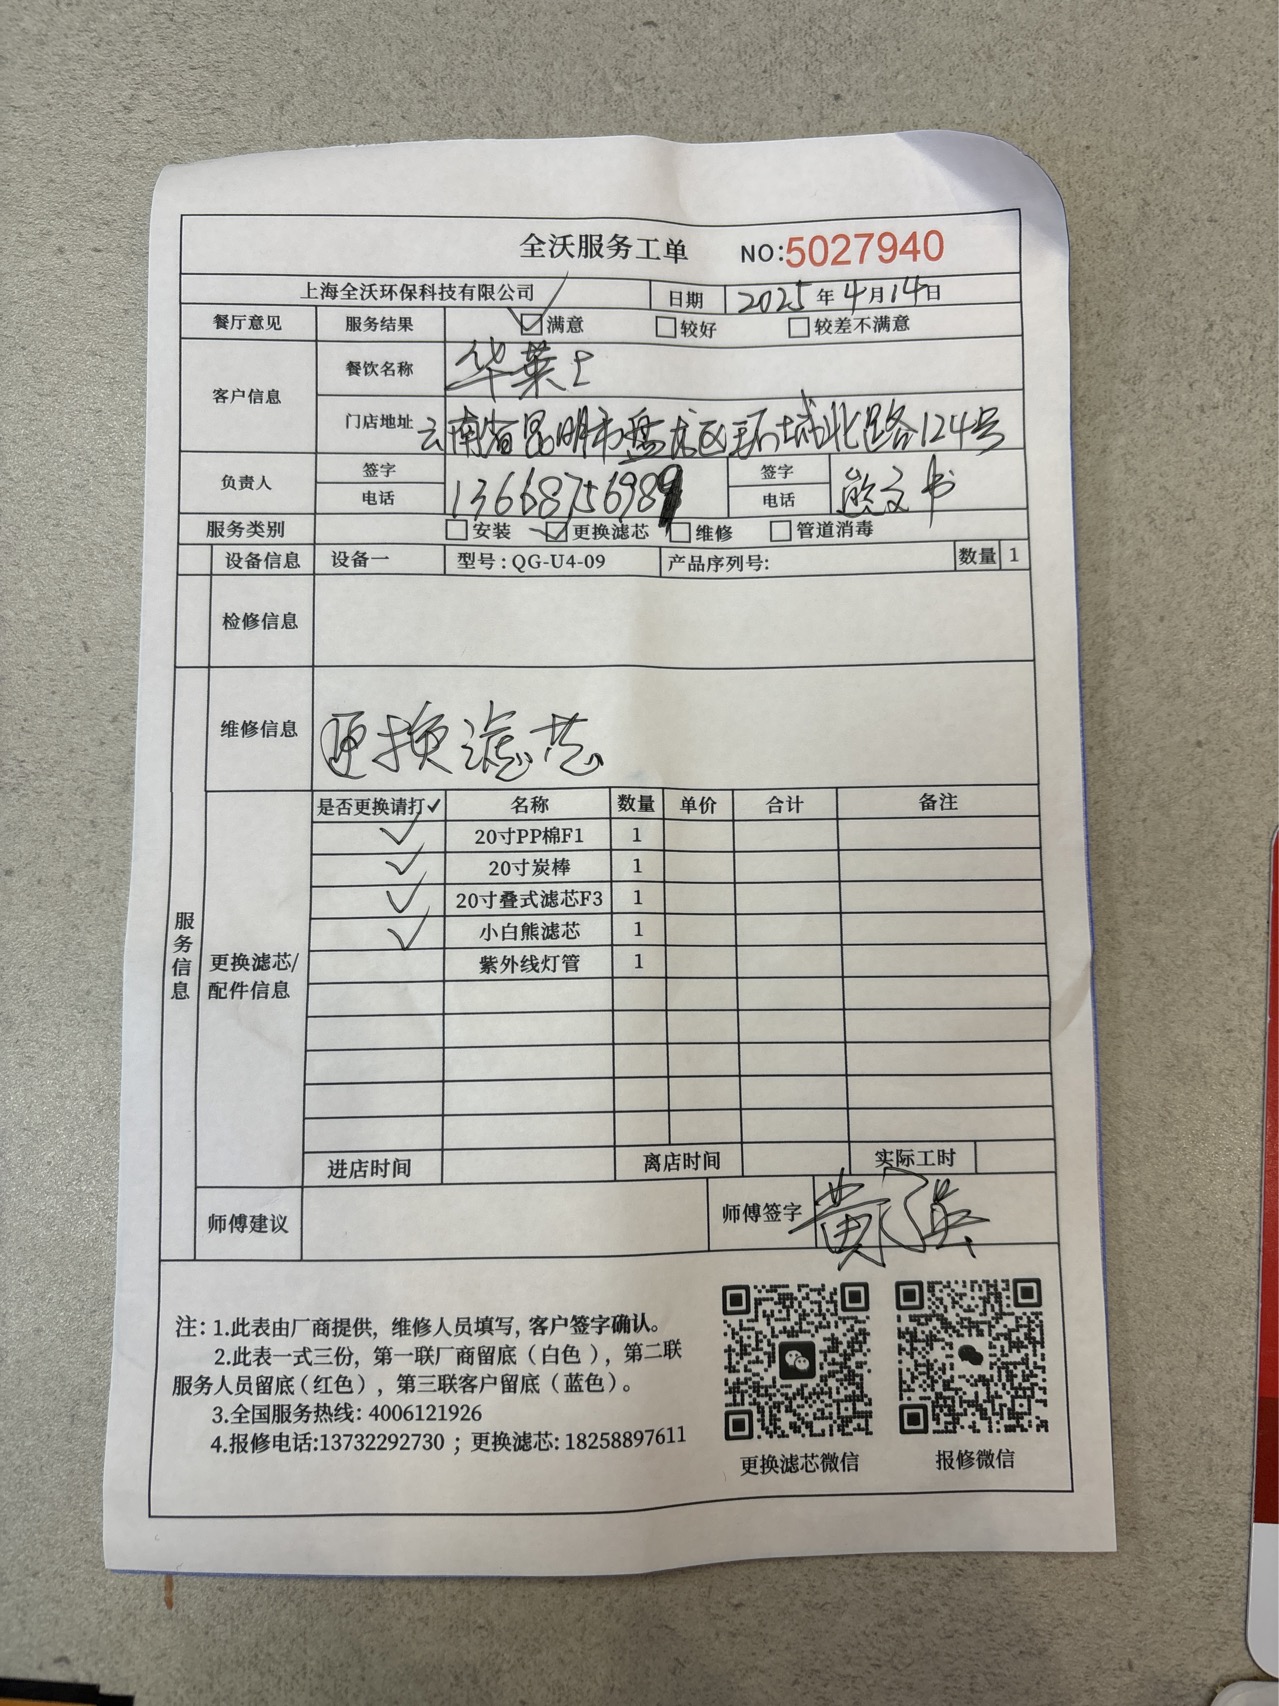 全沃服务工单 NO:5027940
上海全沃环保科技有限公司 日期 2025年4月14日
餐厅意见 服务结果 ☑满意 □较好 □较差不满意
客户信息 餐饮名称 华莱士
门店地址 云南省昆明市盘龙区环城北路124号
负责人 签字 签字
电话 13668756989 电话 文书
服务类别 □安装 ☑更换滤芯 □维修 □管道消毒
设备信息 设备一 型号：QG-U4-09 产品序列号: 数量 1
检修信息
维修信息 更换滤芯
服务信息
更换滤芯/配件信息
是否更换请打✓ 名称 数量 单价 合计 备注
✓ 20寸PP棉F1 1
✓ 20寸炭棒 1
✓ 20寸叠式滤芯F3 1
✓ 小白熊滤芯 1
紫外线灯管 1
进店时间 离店时间 实际工时
师傅建议 师傅签字 黄
注：1.此表由厂商提供，维修人员填写，客户签字确认。
2.此表一式三份，第一联厂商留底（白色），第二联
服务人员留底（红色），第三联客户留底（蓝色）。
3.全国服务热线：4006121926
4.报修电话:13732292730 ；更换滤芯: 18258897611
更换滤芯微信 报修微信